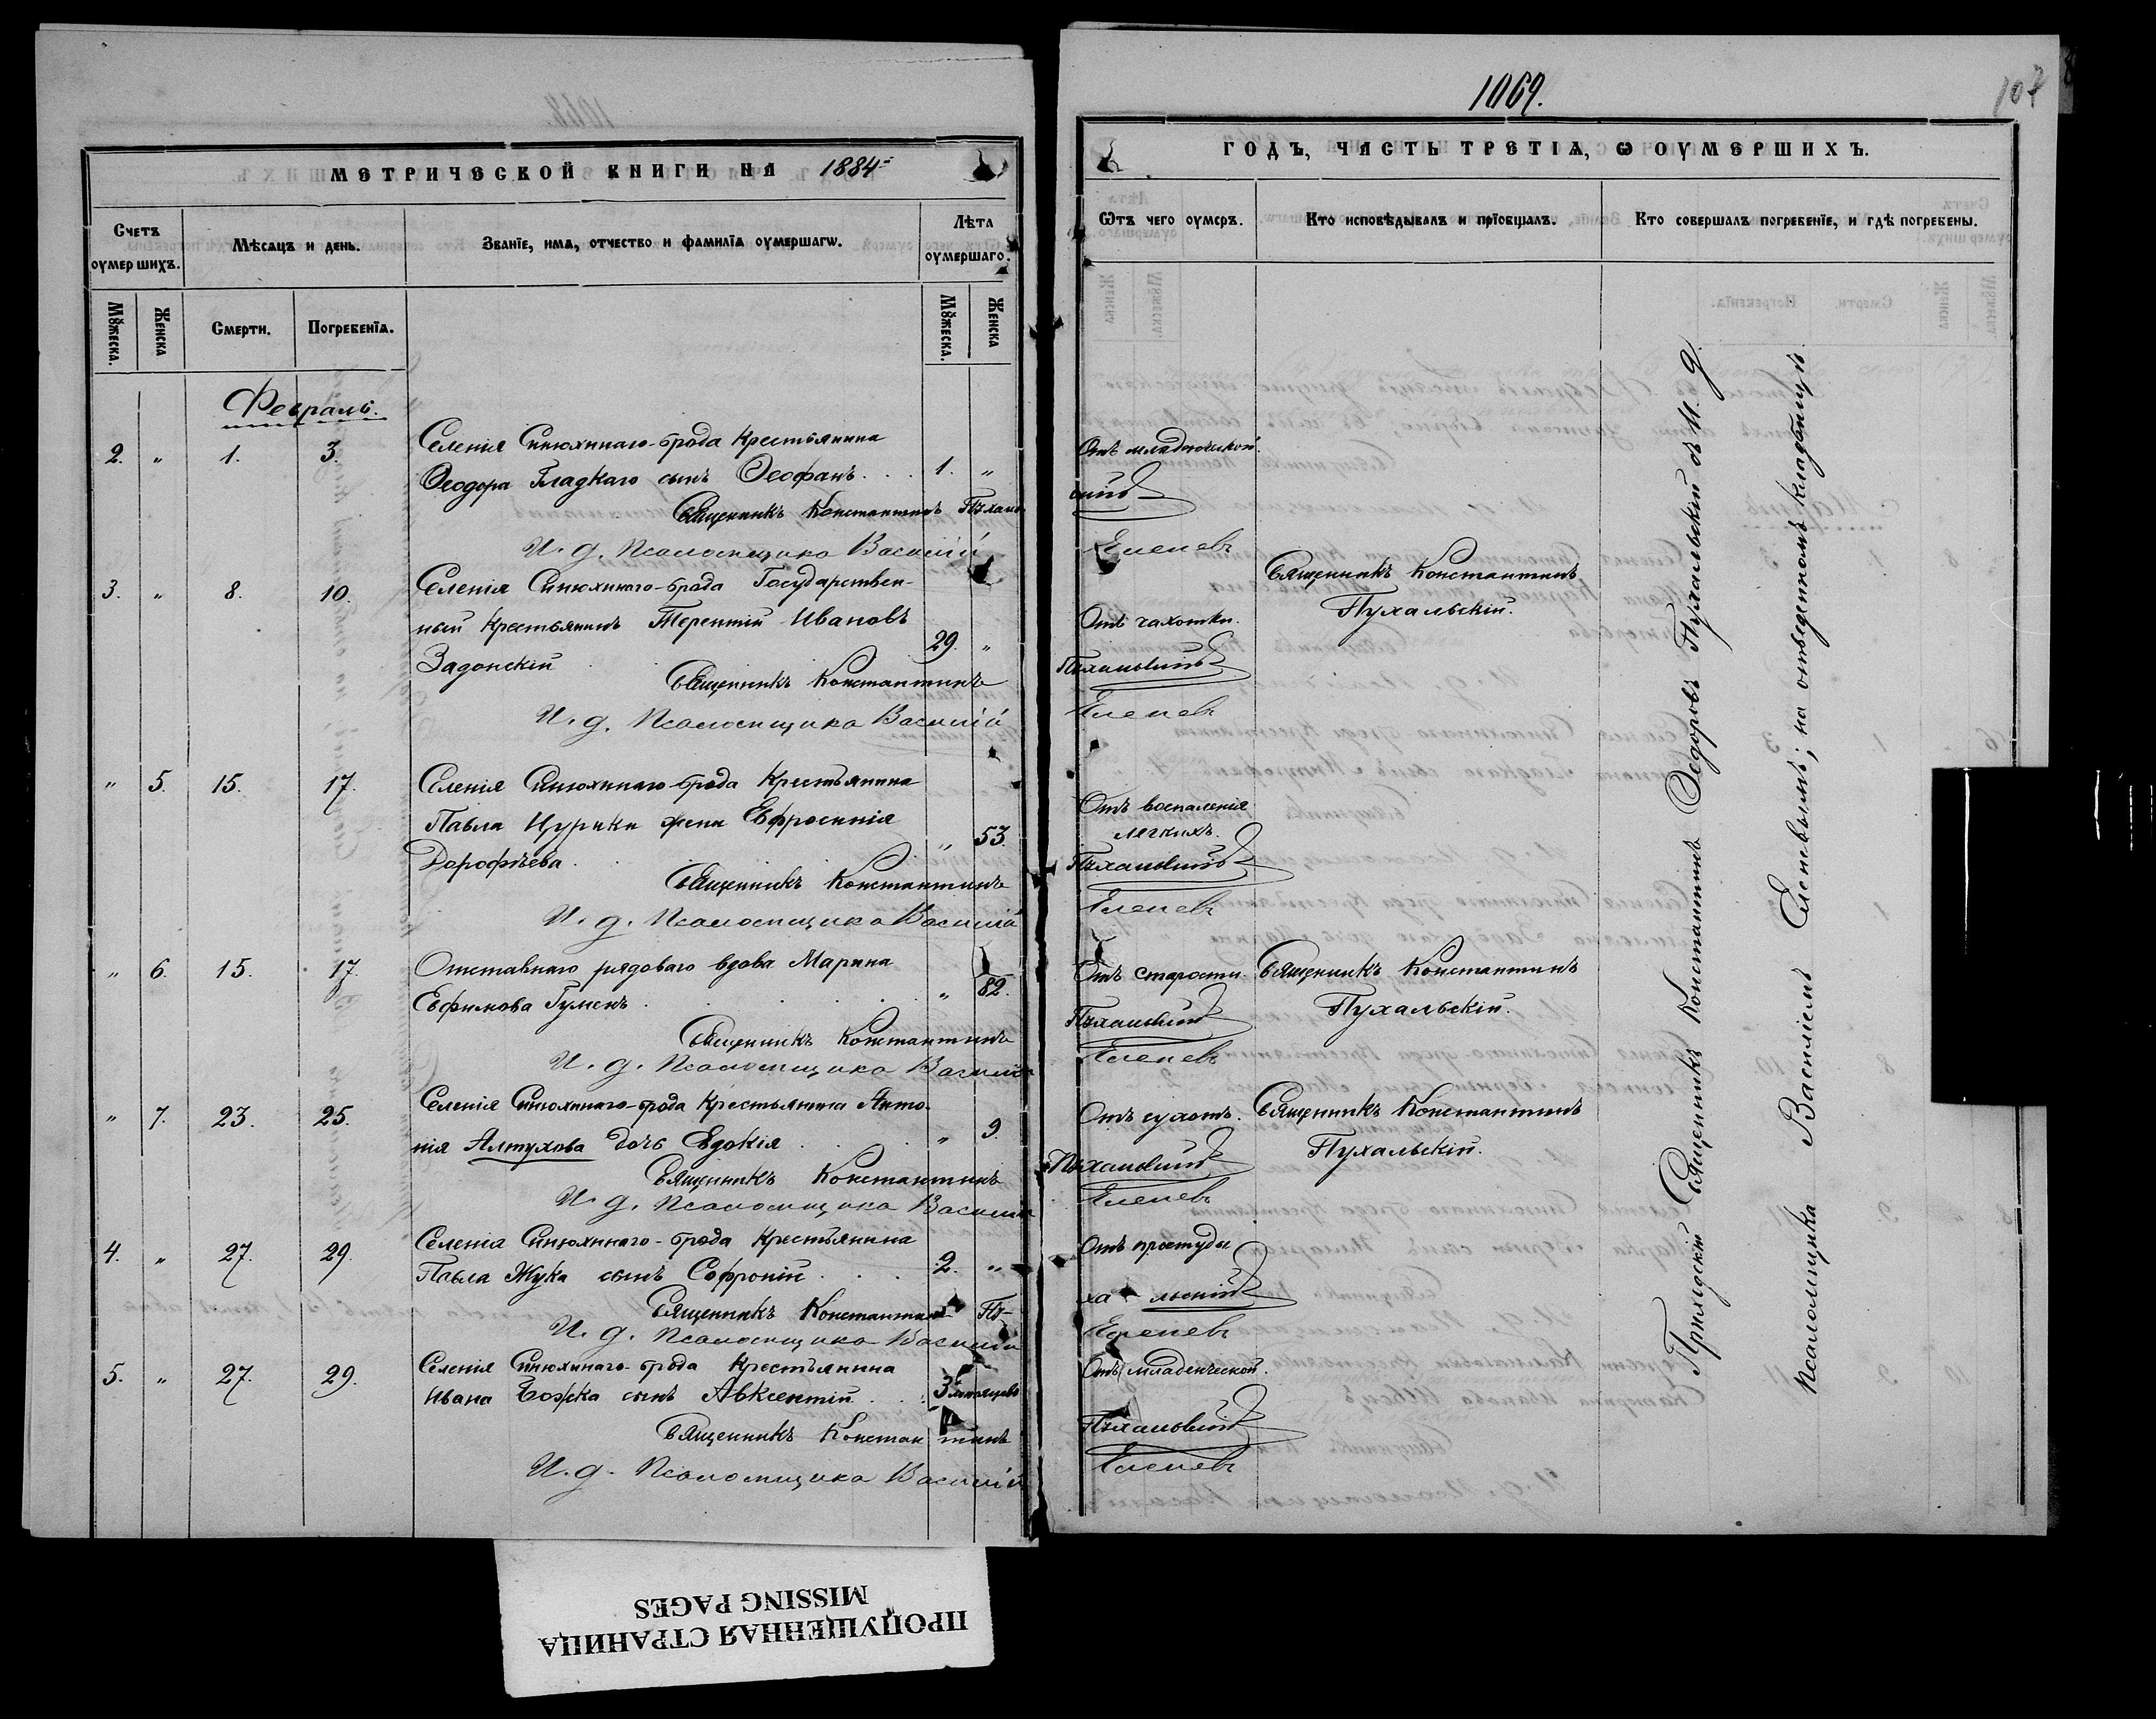 1069.
107
МЕТРИЧЕСКОЙ КНИГИ НА 1884
ГОДЪ, ЧАСТЬ ТРЕТІѦ, Ѡ ОУМЕРШИХЪ.
Счетъ оумершихъ.
Мѣсяцъ и день.
Званіе, имѧ, отчество и фамиліѧ оумершагѡ.
Лѣта оумершаго.
Ѿтъ чего оумеръ.
Кто исповѣдывалъ и пріобщалъ.
Кто совершалъ погребеніе, и гдѣ погребены.
Мꙋжеска.
Женска
Смерти.
Погребеніѧ.
Мꙋжеска.
Женска
Февраль.
2. " 1. 3.
Селенія Синюхинаго-брода Крестьянина
Ѳеодора Гладкаго сынъ Ѳеофанъ . . 1. "
Отъ младенческой.
Священникъ Константинъ Пухаль
скій
И. д. Псаломщика Василій Еленевъ
3. " 8. 10.
Селенія Синюхинаго-брода Государствен-
ный Крестьянинъ Терентій Ивановъ
Задонскій 29. "
Отъ чахотки.
Священникъ Константинъ
Пухальскій.
Священникъ Константинъ Пухальскій
И. д. Псаломщика Василій Еленевъ
" 5. 15. 17.
Селенія Синюхинаго-брода Крестьянина
Павла Цурики жена Евфросинія
Дорофѣева . . " 53.
Отъ воспаленія
легкихъ.
Священникъ Константинъ Пухальскій
И. д. Псаломщика Василій Еленевъ
" 6. 15. 17.
Отставнаго рядоваго вдова Марина
Евфимова Гуменъ . . . . " 82.
Отъ старости
Священникъ Константинъ
Пухальскій.
Священникъ Константинъ Пухальскій
И. д. Псаломщика Василій Еленевъ
" 7. 23. 25.
Селенія Синюхинаго-брода Крестьянина Анто-
нія Алтухова дочь Евдокія . . . " 9.
Отъ сухотъ.
Священникъ Константинъ
Пухальскій.
Священникъ Константинъ Пухальскій
И. д. Псаломщика Василій Еленевъ
4. " 27. 29
Селенія Синюхинаго-брода Крестьянина
Павла Жука сынъ Софроній . . . 2. "
Отъ простуды
Священникъ Константинъ Пу-
хальскій
И. д. Псаломщика Василій Еленевъ
5. " 27. 29.
Селенія Синюхинаго-брода Крестьянина
Ивана Божка сынъ Авксентій . . 3 мѣсяцевъ
Отъ младенческой.
Священникъ Константинъ Пухальскій
И. д. Псаломщика Василій Еленевъ
Приходскій Священникъ Константинъ Ѳедоровъ Пухальскій съ И. д.
Псаломщика Василіемъ Еленевымъ; на отведенномъ кладбищѣ.
ПРОПУЩЕННАЯ СТРАНИЦА
MISSING PAGES